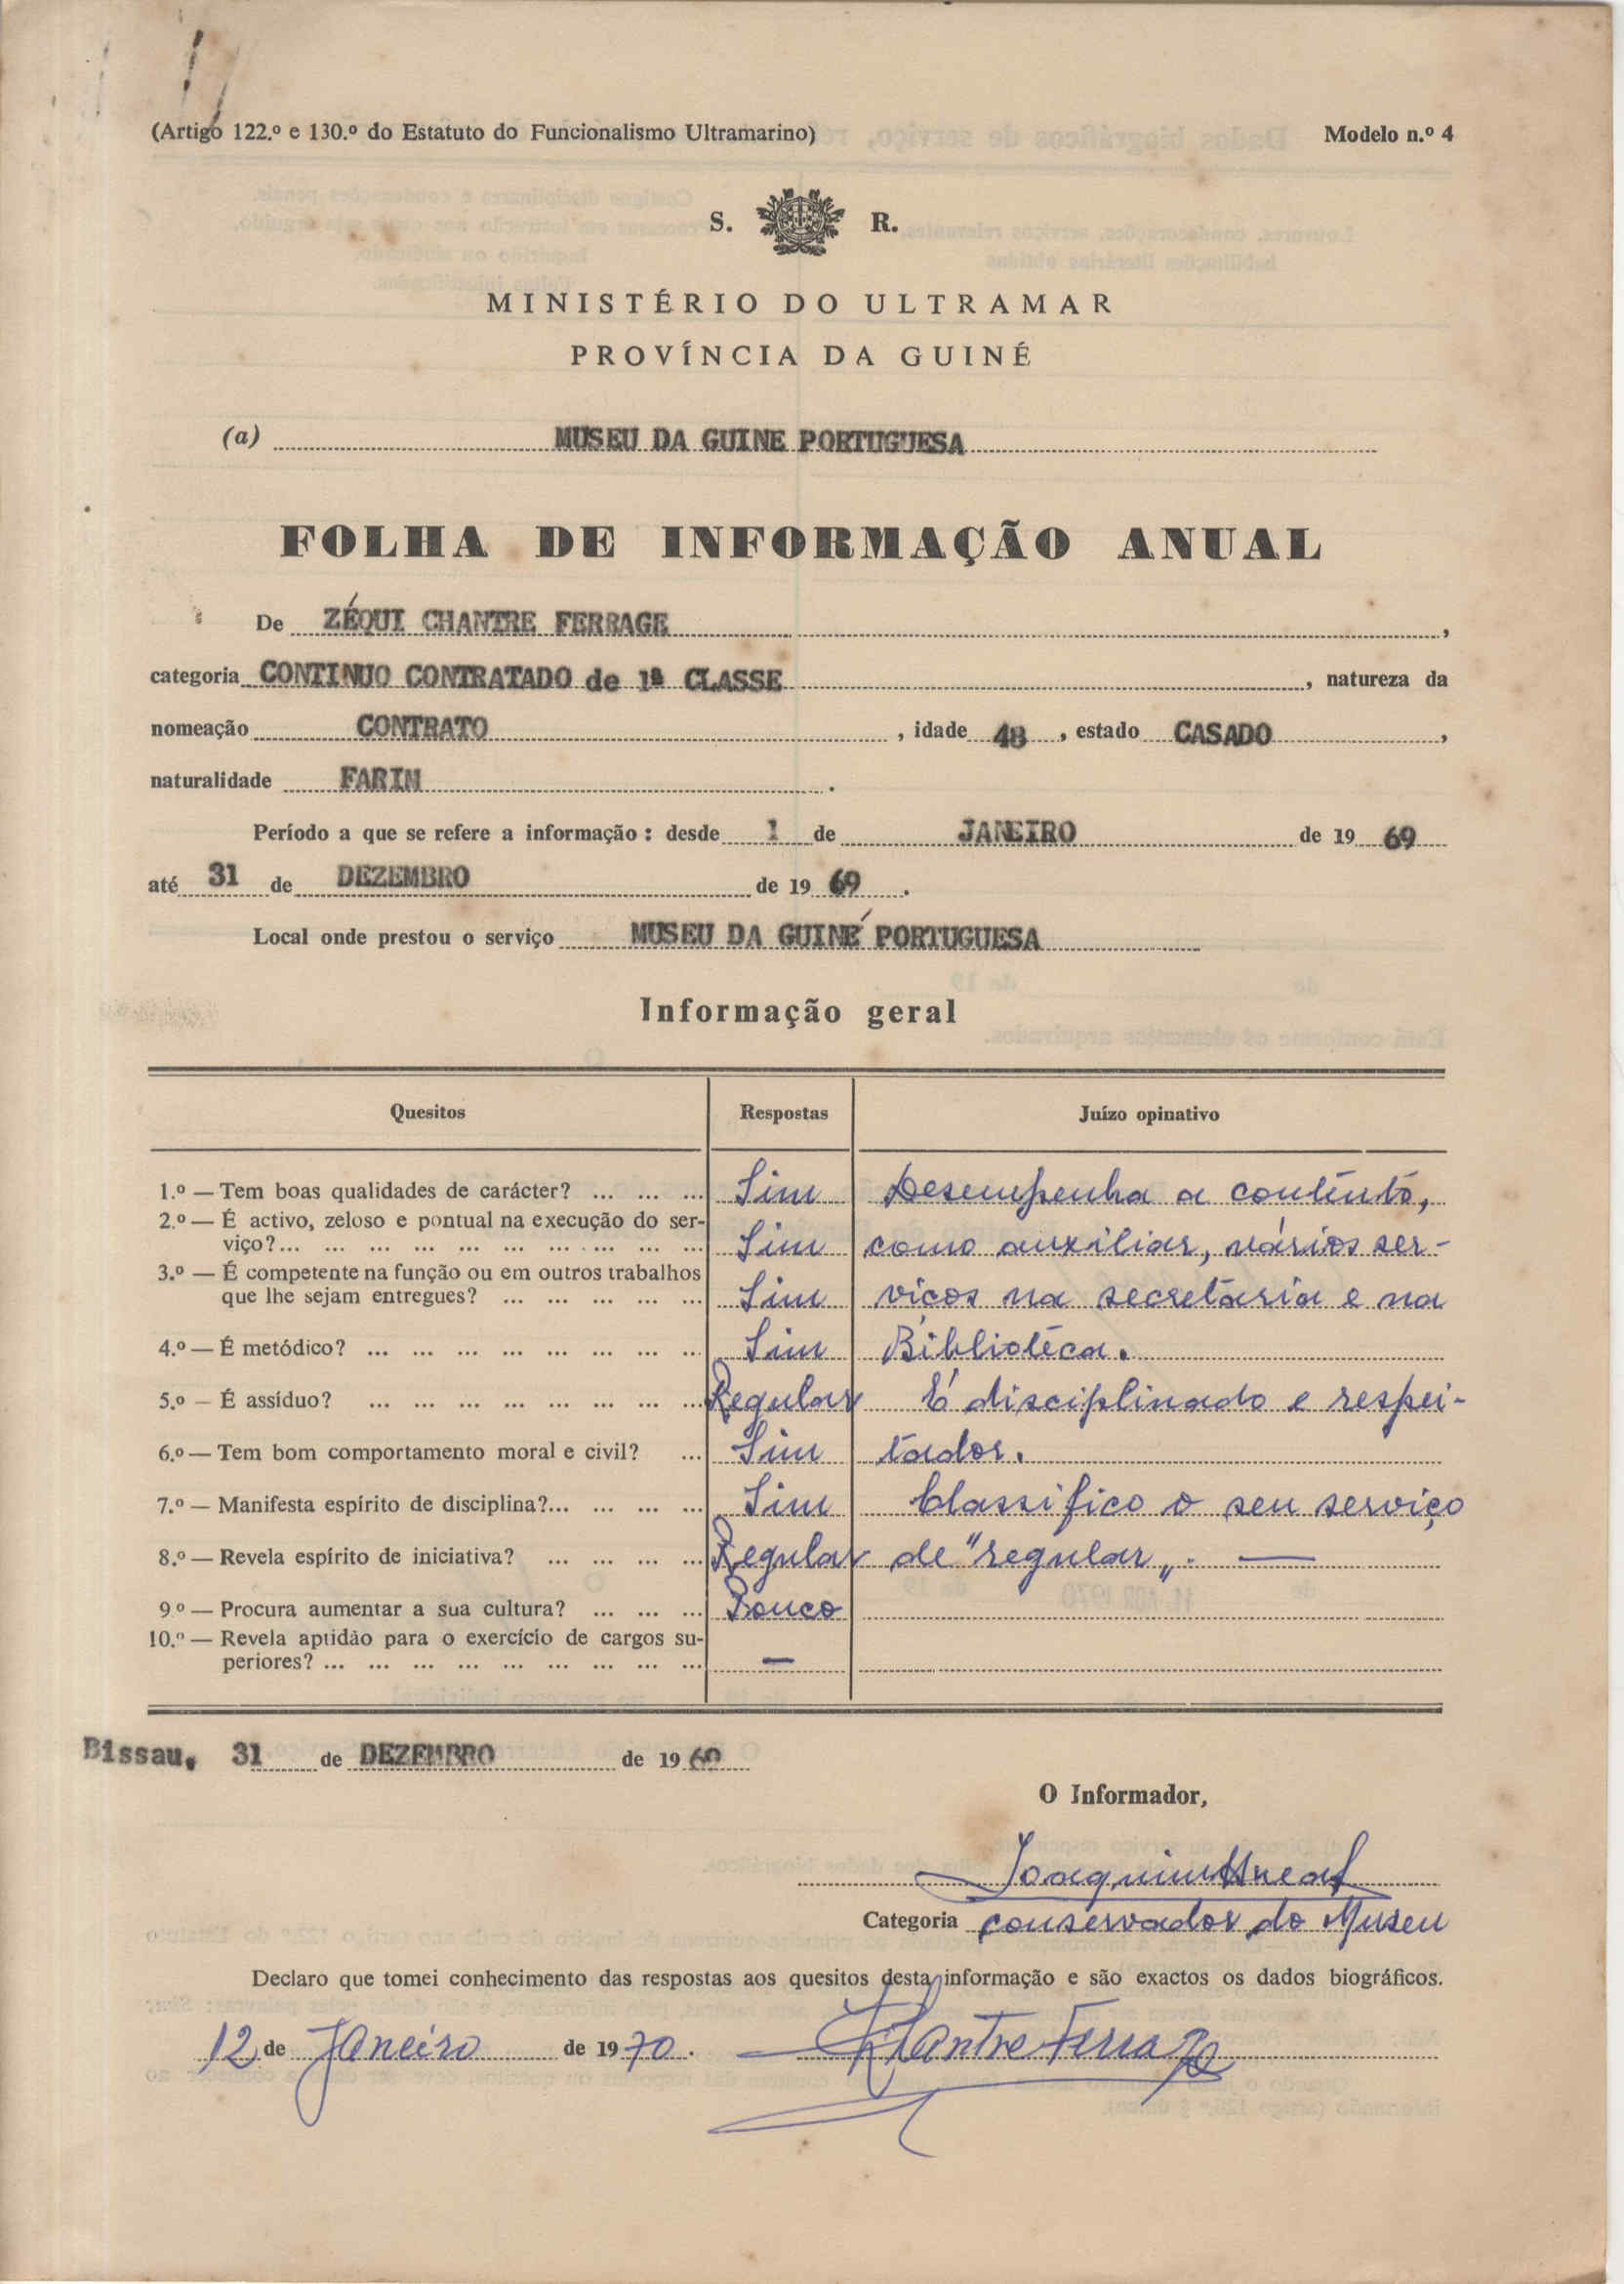 (Artigo 122.º e 130.º do Estatuto do Funcionalismo Ultramarino) Modelo n.º 4
S. R.
MINISTÉRIO DO ULTRAMAR
PROVÍNCIA DA GUINÉ
(a) MUSEU DA GUINE PORTUGUESA
FOLHA DE INFORMAÇÃO ANUAL
De ZÉQUI CHANTRE FERRAGE,
categoria CONTINUO CONTRATADO de 1ª CLASSE, natureza da
nomeação CONTRATO, idade 48, estado CASADO,
naturalidade FARIM.
Período a que se refere a informação: desde 1 de JANEIRO de 19 69
até 31 de DEZEMBRO de 19 69.
Local onde prestou o serviço MUSEU DA GUINÉ PORTUGUESA
Informação geral
Quesitos Respostas Juízo opinativo
1.º — Tem boas qualidades de carácter? ... ... ... Sim Desempenha a contento,
2.º — É activo, zeloso e pontual na execução do ser-
viço?... ... ... ... ... ... ... ... ... ... Sim como auxiliar, vários ser-
3.º — É competente na função ou em outros trabalhos
que lhe sejam entregues? ... ... ... ... ... Sim viços na secretaria e na
4.º — É metódico? ... ... ... ... ... ... ... ... Sim Biblioteca.
5.º — É assíduo? ... ... ... ... ... ... ... ... Regular É disciplinado e respei-
6.º — Tem bom comportamento moral e civil? ... Sim tador.
7.º — Manifesta espírito de disciplina?... ... ... ... Sim Classifico o seu serviço
8.º — Revela espírito de iniciativa? ... ... ... ... Regular de "regular„. —
9.º — Procura aumentar a sua cultura? ... ... ... Pouco
10.º — Revela aptidão para o exercício de cargos su-
periores? ... ... ... ... ... ... ... ... ... —
Bissau, 31 de DEZEMBRO de 19 69
O Informador,
Joaquim Areal
Categoria conservador do Museu
Declaro que tomei conhecimento das respostas aos quesitos desta informação e são exactos os dados biográficos.
12 de Janeiro de 1970. Chantre Ferrage